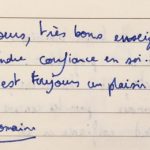 ours, très bons enseig
ndre confiance en soi...
est toujours un plaisir
omain